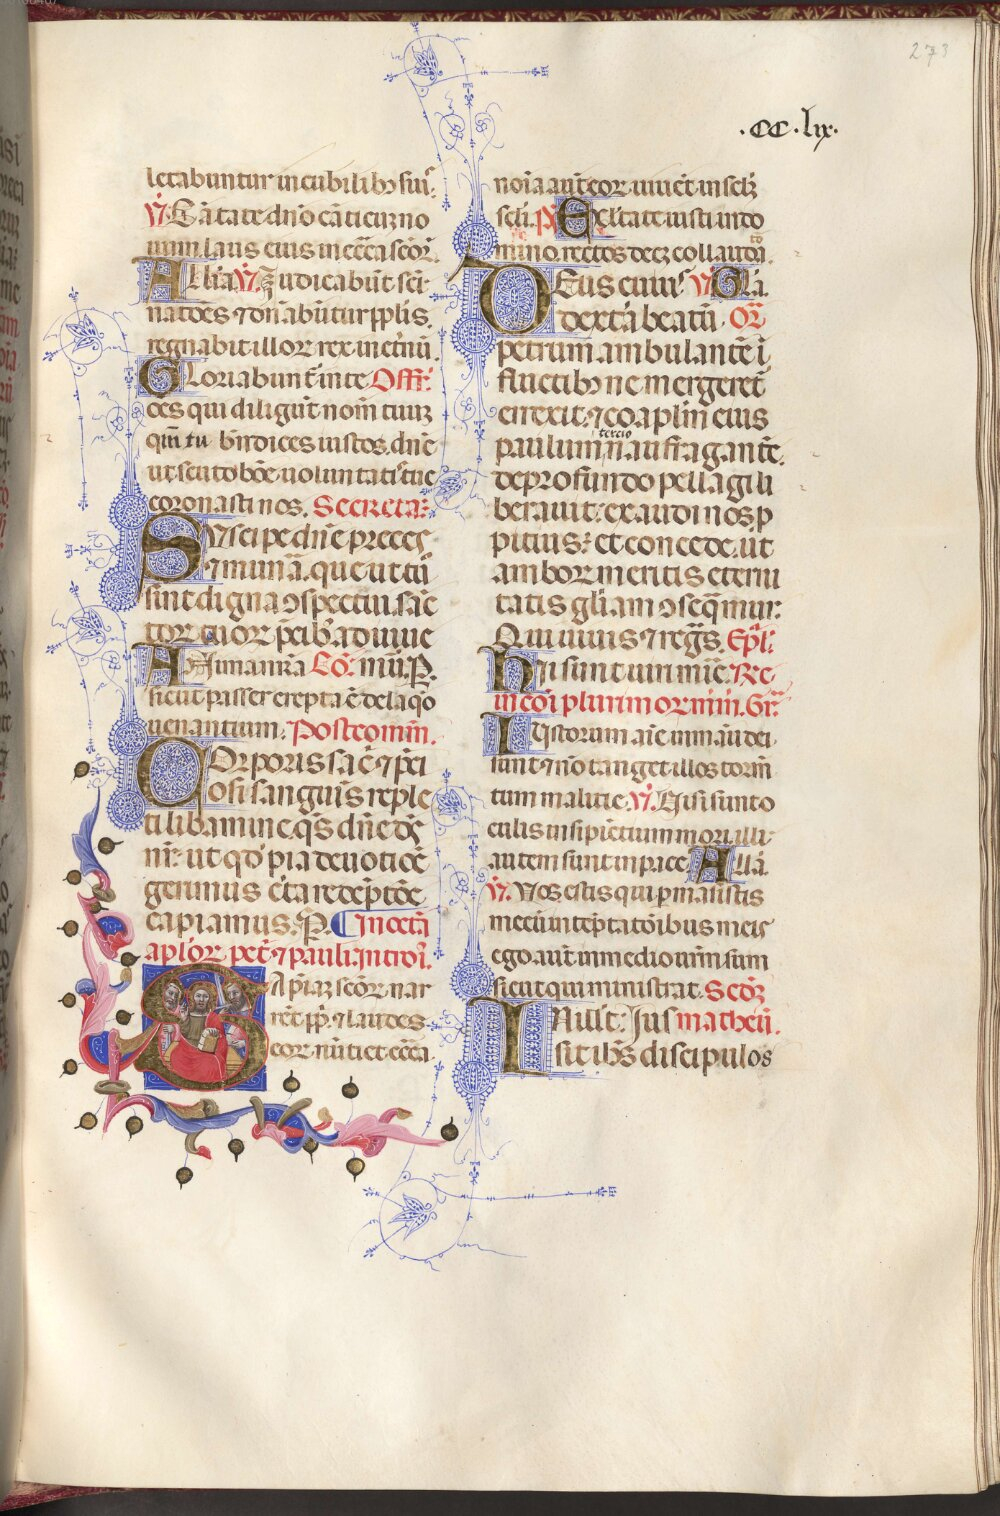 273
.CC.lix.
letabuntur in cubilib; suis.
V. Cātate dn̄o cāticuȝ no
uum. laus eius in ecc̄a scōꝝ.
Allīa. V. Judicabūt scī
natōes ⁊ dn̄abūtur pp̄lis.
regnabit illoꝝ rex in et̄nū.
Gloriabunt̄ in te Offr̄.
oēs qui diligūt nom̄ tuuȝ
qm̄ tu bn̄dices iustos. dn̄e
ut scuto bōe uoluntatis tue
coronasti nos. Secreta.
Suscipe dn̄e preces
⁊ munā. que ut tū
sint digna ↄspectu. sāc
toꝝ tuoꝝ p̄cib; adiuue
Anima nr̄a Cō. mūr. P.
sicut passer erepta ē de laq̄o
uenantium. Postcom̄m.
Corporis sāc̄ ⁊ p̄ci
osi sanguīs reple
ti libamine. q̄s dn̄e dē
nr̄. ut qd̄ pia deuotiōe
gerimus c̄ta redēptōe
capiamus. P. In octā
ap̄loꝝ pet̄ ⁊ pauli. Introī.
Sapiāȝ scōꝝ nar
rēt pp̄. ⁊ laudes
eoꝝ nūtiet ecc̄a.
noīa aūt eoꝝ uiuēt in sclȝ
scli. P̄s. Exltate iusti in do
mino. rectos decȝ collauda.
Deus cuius V. Glā.
dextā beatū. Or̄.
petrum. ambulantē ī
fluctib; ne mergeret̄
erexit. ⁊ coapl̄m eius
paulum tercio naufragantē.
de profundo pellagi li
berauit. exaudi nos. p
pitius. et concede. ut
amboꝝ meritis eterni
tatis glīam ↄseq̄mur.
Qui uiuis ⁊ regs̄. Epl̄.
Hii sunt uiri mie. Rec̄
in cōi plurimoꝝ mr̄m. Gr̄.
Iustorum aīe in manu dei
sunt ⁊ nō tanget illos torm̄
tum malitie. V. Uisi sunt o
culis insipiētium mori. illi
autem sunt in pace. Allā.
V. Uos estis qui p̄māsistis
mecū in tēptatōibus meis
ego aūt in medio ur̄m sum
sicut qui ministrat. Scd̄ȝ
In illo t. Jus matheū.
sit ih̄s discipulos